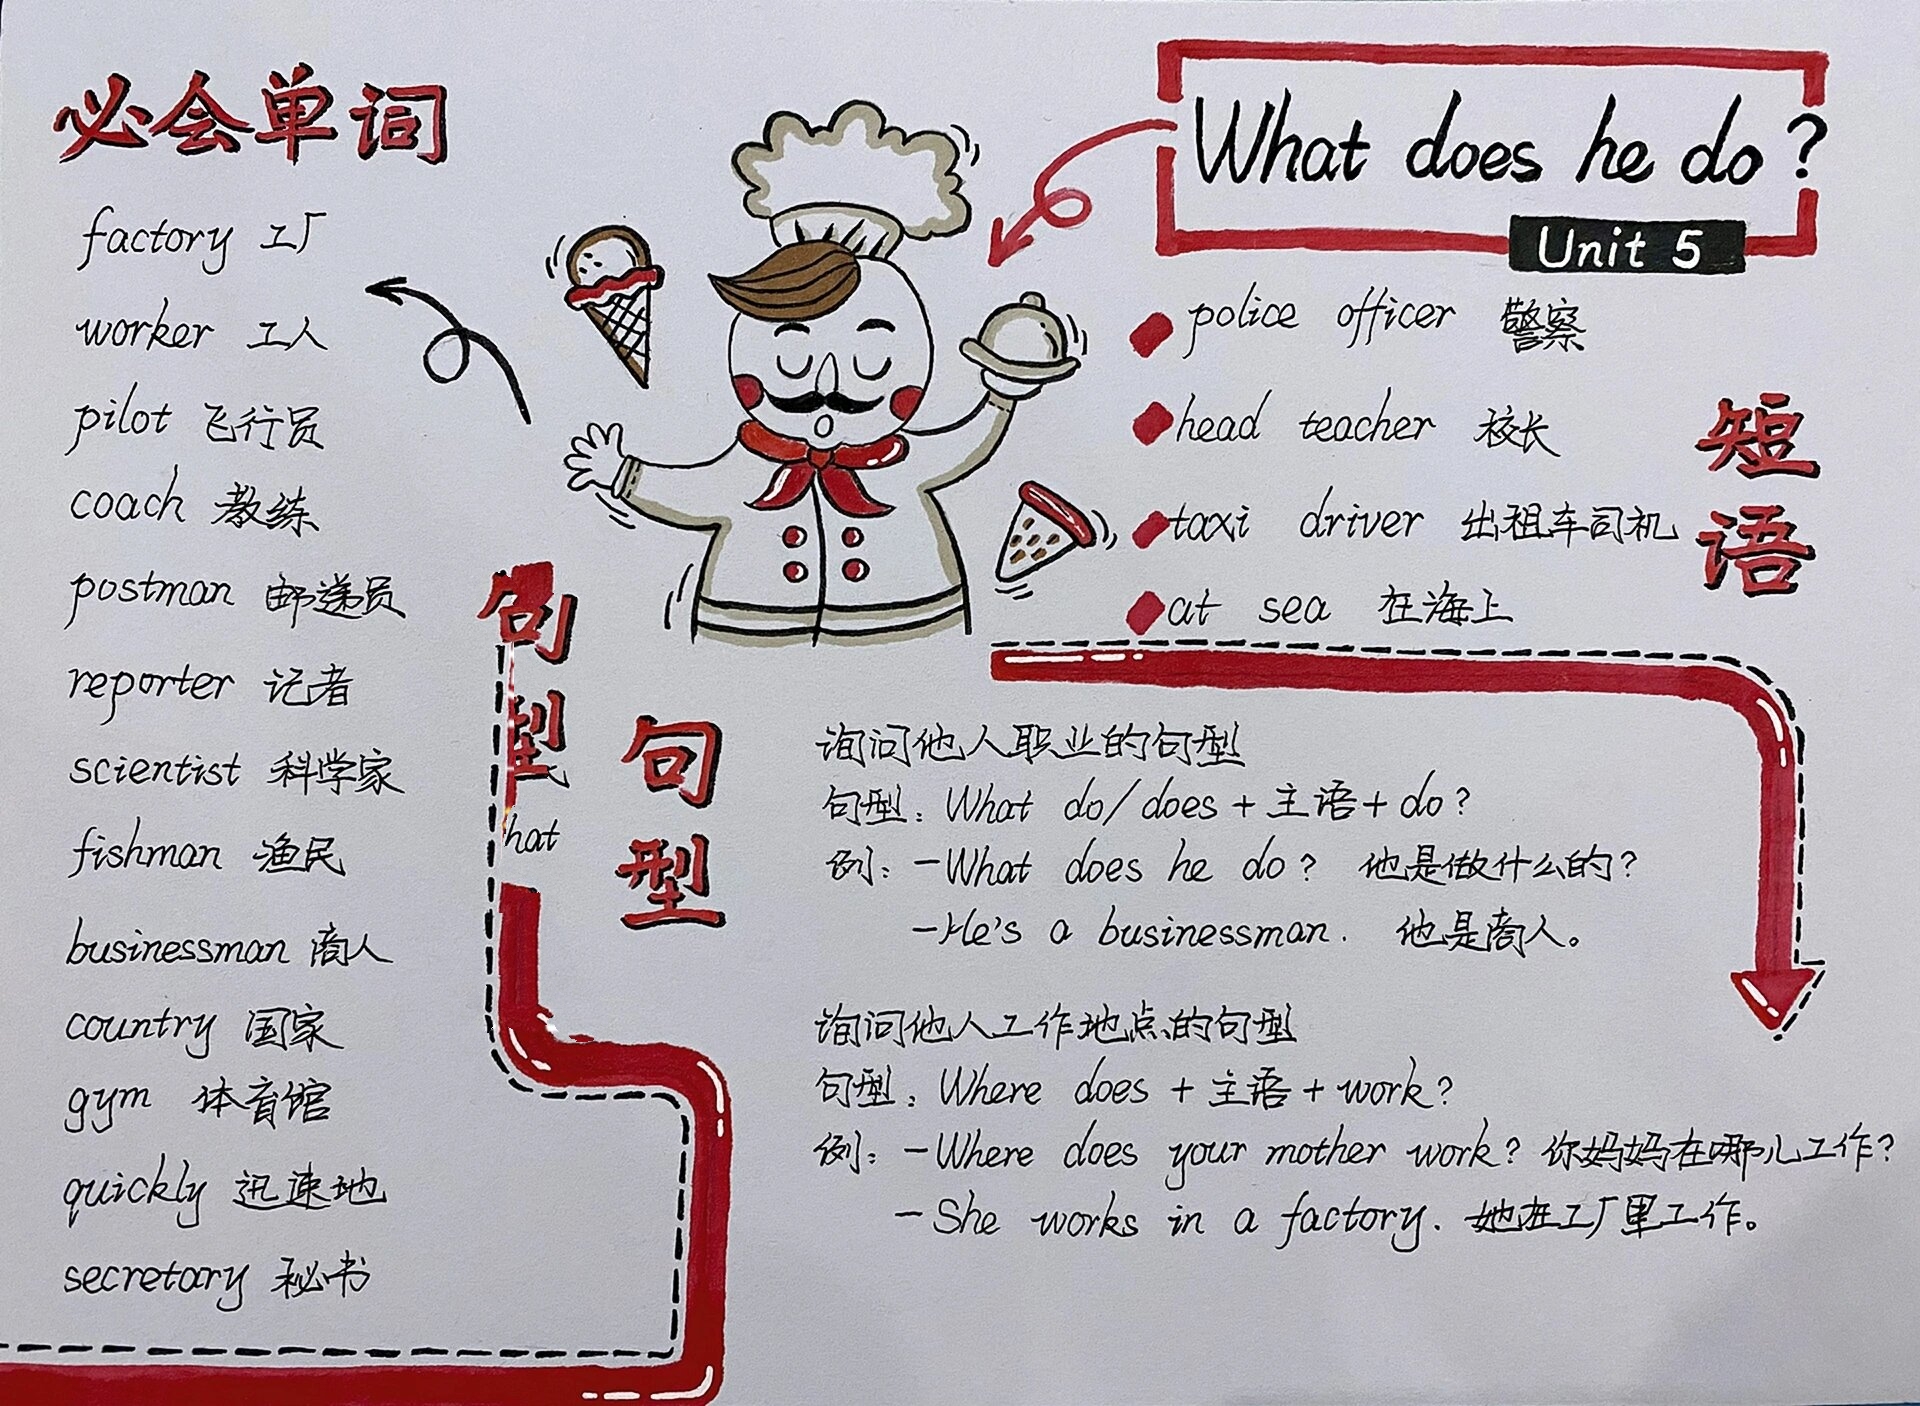 必会单词
factory 工厂
worker 工人
pilot 飞行员
coach 教练
postman 邮递员
reporter 记者
scientist 科学家
fishman 渔民
businessman 商人
country 国家
gym 体育馆
quickly 迅速地
secretary 秘书
What does he do?
Unit 5
police officer 警察
head teacher 校长
taxi driver 出租车司机
at sea 在海上
短语
句型
hat
句型
询问他人职业的句型
句型：What do/does+主语+do?
例：-What does he do? 他是做什么的?
-He's a businessman. 他是商人。
询问他人工作地点的句型
句型：Where does+主语+work?
例：-Where does your mother work? 你妈妈在哪儿工作?
-She works in a factory. 她在工厂里工作。